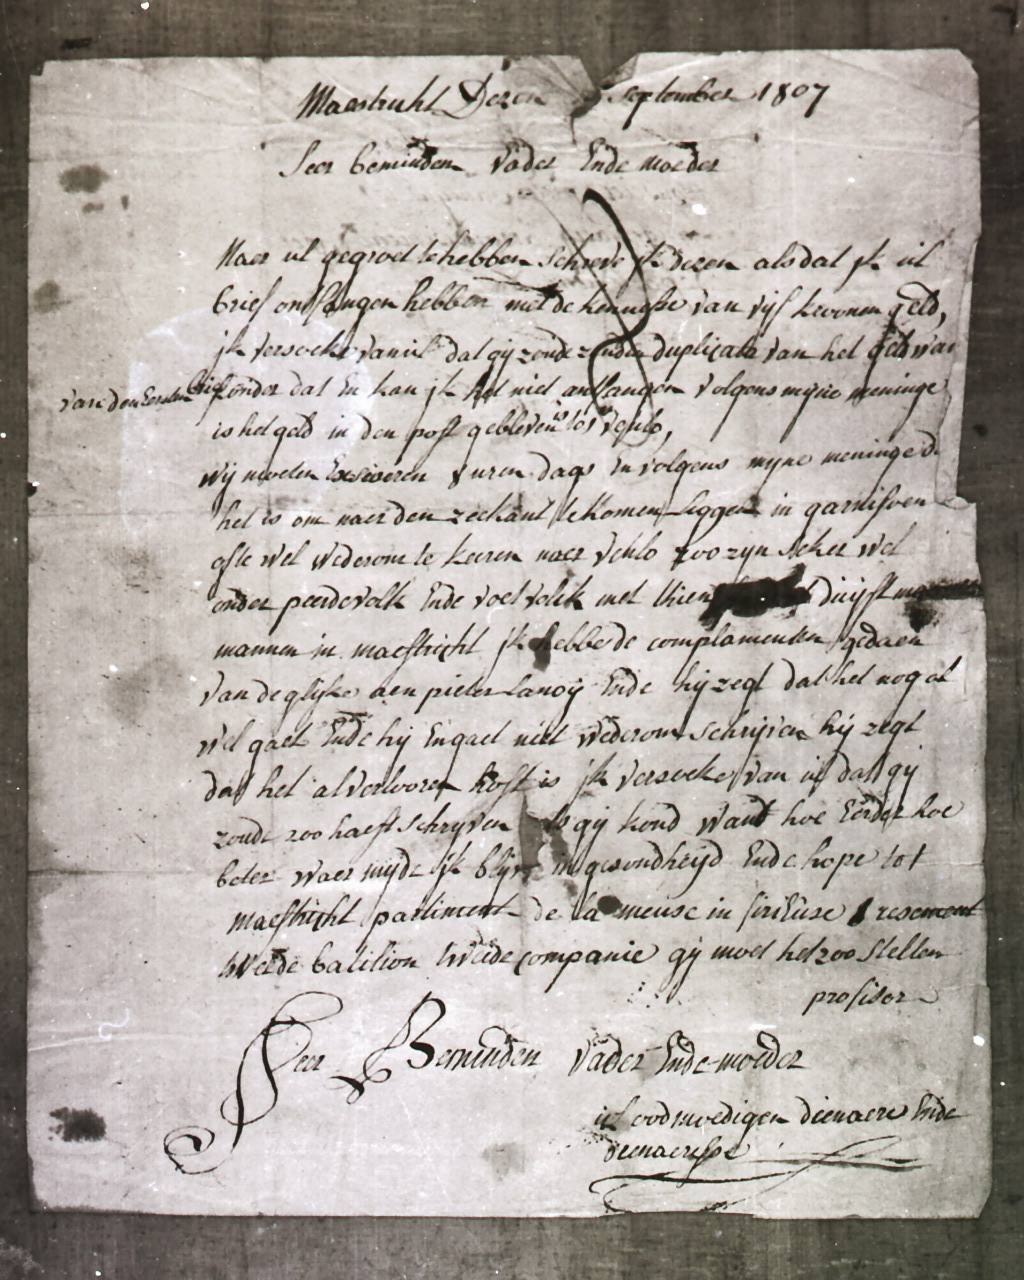 Maestricht Dezen 5 September 1807
Seer beminden vader Ende moeder
Naer ul gegroet te hebben schreve jk dezen als dat jk ul
brief ontfangen hebben met de kennesse van vijf kroonen geld,
jk versoeke van ul dat gij zoude zenden duplicata van het geld van
van den Eersten brief zonder dat En kan jk het niet antfangen volgens myne meninge
is het geld in den post gebleven is tot venlo,
wij moeten Exsiseren vuren dags En volgens myne meninge
het is om naer den zeekant te komen liggen in garnisoen
ofte wel wederom te keeren naer venlo zoo zyn seker wel
onder peerdevolk Ende voetvolk met thien duijst
mannen in maestricht jk hebbe de complamenten gedaen
van deglijke aen pieter Lanoij Ende hij zegt dat het nog al
wel gaet Ende hij En gaet niet wederom schrijven hij zegt
dat het al verlooren kost is jk versoeke van ul dat gij
zoude zoo haest schryven als gij kond want hoe Eerder hoe
beter waer mijde jk blyve in gesondheyd Ende hope tot
maestricht partiment de la meuse in 1 resement
tweede batilion tweede companie gij moet het zoo stellen
profiser
Seer Beminden vader Ende moeder
ul oodmoedigen dienaere Ende
dienaeresse